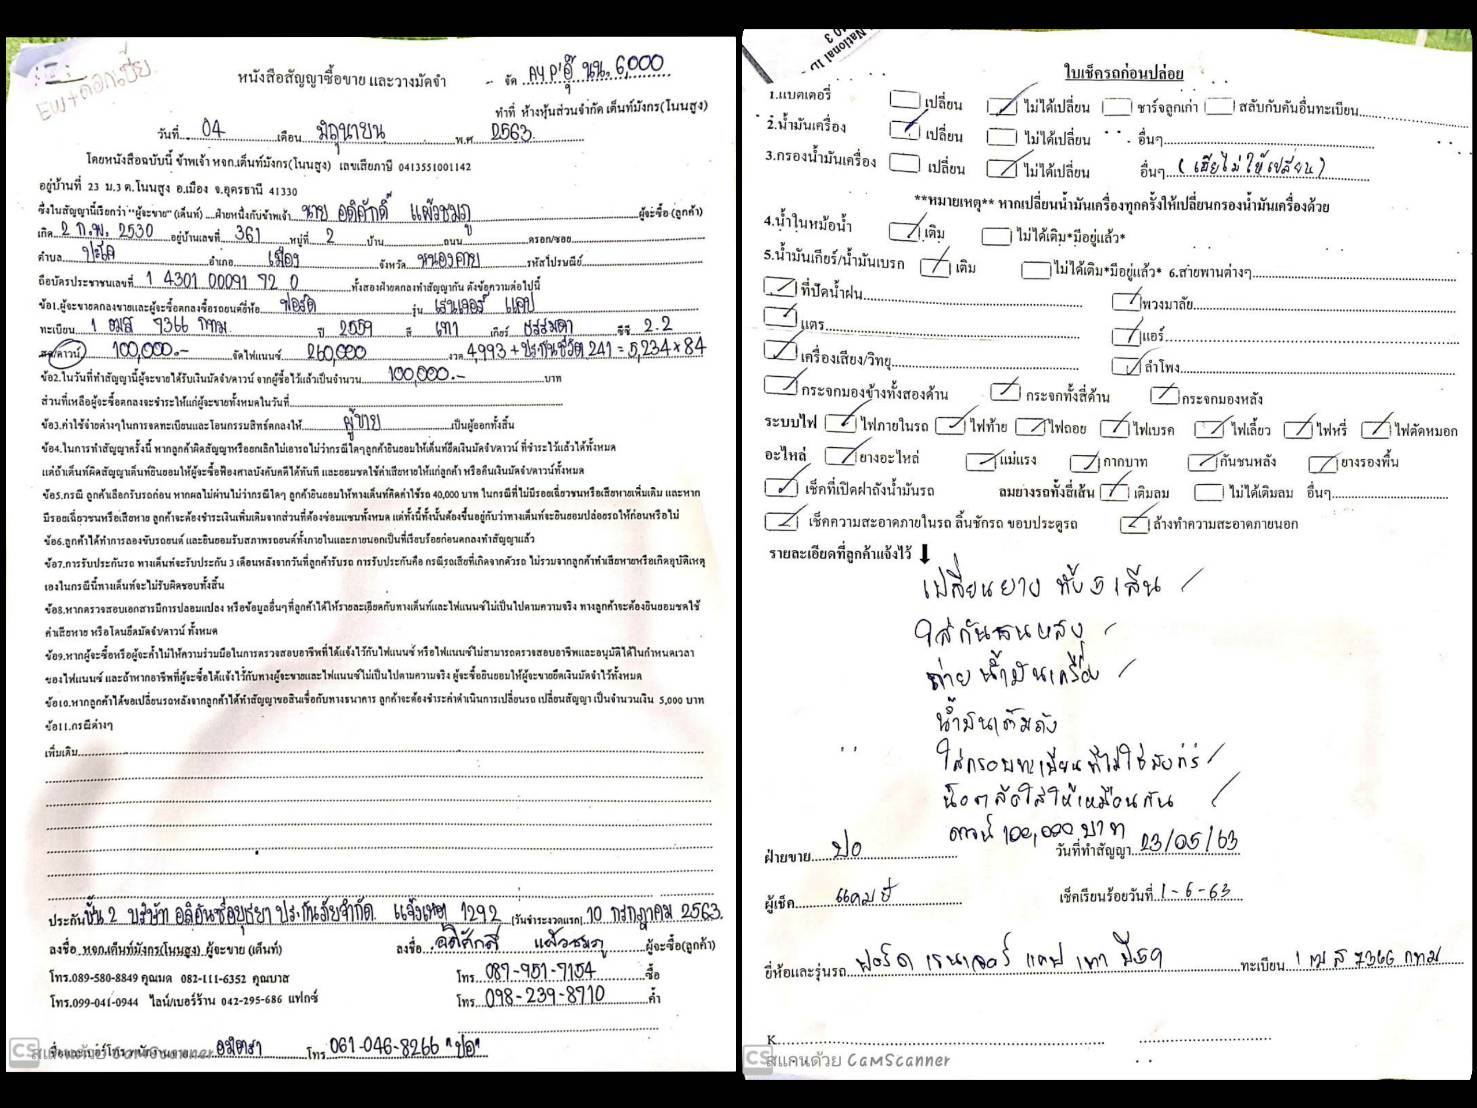 หนังสือสัญญาซื้อขาย และวางมัดจำ
จัด AY P'อุ๊ นน. 6,000
ทำที่ ห้างหุ้นส่วนจำกัด เต็นท์มังกร(โนนสูง)
วันที่ 04 เดือน มิถุนายน พ.ศ 2563
โดยหนังสือฉบับนี้ ข้าพเจ้า หจก.เต็นท์มังกร(โนนสูง) เลขเสียภาษี 0413551001142
อยู่บ้านที่ 23 ม.3 ต.โนนสูง อ.เมือง จ.อุดรธานี 41330
ซึ่งในสัญญานี้เรียกว่า "ผู้จะขาย" (เต็นท์) ....ฝ่ายหนึ่งกับข้าพเจ้า นาย อดิศักดิ์ แผ้วชมภู ผู้จะซื้อ (ลูกค้า)
เกิด 2 ก.พ. 2530 อยู่บ้านเลขที่ 361 หมู่ที่ 2 บ้าน ถนน ตรอก/ซอย
ตำบล ปะโค อำเภอ เมือง จังหวัด หนองคาย รหัสไปรษณีย์
ถือบัตรประชาชนเลขที่ 1 4301 00091 72 0 ทั้งสองฝ่ายตกลงทำสัญญากัน ดังข้อความต่อไปนี้
ข้อ1.ผู้จะขายตกลงขายและผู้จะซื้อตกลงซื้อรถยนต์ยี่ห้อ ฟอร์ด รุ่น เรนเจอร์ แคป
ทะเบียน 1 ฒส 7366 กทม. ปี 2559 สี เทา เกียร์ ธรรมดา ซีซี 2.2
สด/ดาวน์ 100,000.- จัดไฟแนนซ์ 260,000 งวด 4,993 + ประกันชีวิต 241 = 5,234 x 84
ข้อ2.ในวันที่ทำสัญญานี้ผู้จะขายได้รับเงินมัดจำ/ดาวน์ จากผู้ซื้อไว้แล้วเป็นจำนวน 100,000.- บาท
ส่วนที่เหลือผู้จะซื้อตกลงจะชำระให้แก่ผู้จะขายทั้งหมดในวันที่
ข้อ3.ค่าใช้จ่ายต่างๆในการจดทะเบียนและโอนกรรมสิทธิ์ตกลงให้ ผู้ขาย เป็นผู้ออกทั้งสิ้น
ข้อ4.ในการทำสัญญาครั้งนี้ หากลูกค้าผิดสัญญาหรือยกเลิกไม่เอารถไม่ว่ากรณีใดๆลูกค้ายินยอมให้เต็นท์ยึดเงินมัดจำ/ดาวน์ ที่ชำระไว้แล้วได้ทั้งหมด
แต่ถ้าเต็นท์ผิดสัญญาเต็นท์ยินยอมให้ผู้จะซื้อฟ้องศาลบังคับคดีได้ทันที และยอมชดใช้ค่าเสียหายให้แก่ลูกค้า หรือคืนเงินมัดจำ/ดาวน์ทั้งหมด
ข้อ5.กรณี ลูกค้าเลือกรับรถก่อน หากผลไม่ผ่านไม่ว่ากรณีใดๆ ลูกค้ายินยอมให้ทางเต็นท์คิดค่าใช้รถ 40,000 บาท ในกรณีที่ไม่มีรอยเฉี่ยวชนหรือเสียหายเพิ่มเติม และหาก
มีรอยเฉี่ยวชนหรือเสียหาย ลูกค้าจะต้องชำระเงินเพิ่มเติมจากส่วนที่ต้องซ่อมแซมทั้งหมด แต่ทั้งนี้ทั้งนั้นต้องขึ้นอยู่กับว่าทางเต็นท์จะยินยอมปล่อยรถให้ก่อนหรือไม่
ข้อ6.ลูกค้าได้ทำการลองขับรถยนต์ และยินยอมรับสภาพรถยนต์ทั้งภายในและภายนอกเป็นที่เรียบร้อยก่อนตกลงทำสัญญาแล้ว
ข้อ7.การรับประกันรถ ทางเต็นท์จะรับประกัน 3 เดือนหลังจากวันที่ลูกค้ารับรถ การรับประกันคือ กรณีรถเสียที่เกิดจากตัวรถ ไม่รวมจากลูกค้าทำเสียหายหรือเกิดอุบัติเหตุ
เองในกรณีนี้ทางเต็นท์จะไม่รับผิดชอบทั้งสิ้น
ข้อ8.หากตรวจสอบเอกสารมีการปลอมแปลง หรือข้อมูลอื่นๆที่ลูกค้าได้ให้รายละเอียดกับทางเต็นท์และไฟแนนซ์ไม่เป็นไปตามความจริง ทางลูกค้าจะต้องยินยอมชดใช้
ค่าเสียหาย หรือโดนยึดมัดจำ/ดาวน์ ทั้งหมด
ข้อ9.หากผู้จะซื้อหรือผู้จะค้ำไม่ให้ความร่วมมือในการตรวจสอบอาชีพที่ได้แจ้งไว้กับไฟแนนซ์ หรือไฟแนนซ์ไม่สามารถตรวจสอบอาชีพและอนุมัติได้ในกำหนดเวลา
ของไฟแนนซ์ และถ้าหากอาชีพที่ผู้จะซื้อได้แจ้งไว้กับทางผู้จะขายและไฟแนนซ์ไม่เป็นไปตามความจริง ผู้จะซื้อยินยอมให้ผู้จะขายยึดเงินมัดจำไว้ทั้งหมด
ข้อ10.หากลูกค้าได้ขอเปลี่ยนรถหลังจากลูกค้าได้ทำสัญญาขอสินเชื่อกับทางธนาคาร ลูกค้าจะต้องชำระค่าดำเนินการเปลี่ยนรถ เปลี่ยนสัญญา เป็นจำนวนเงิน 5,000 บาท
ข้อ11.กรณีต่างๆ
เพิ่มเติม
ประกันชั้น 2 บริษัท อลิอันซ์อยุธยา ประกันภัยจำกัด แจ้งเหตุ 1292 (วันชำระงวดแรก) 10 กรกฎาคม 2563
ลงชื่อ หจก.เต็นท์มังกร(โนนสูง) ผู้จะขาย (เต็นท์) ลงชื่อ อดิศักดิ์ แผ้วชมภู ผู้จะซื้อ(ลูกค้า)
โทร.089-580-8849 คุณมด 082-111-6352 คุณบาส โทร. 087-951-7154 ซื้อ
โทร.099-041-0944 ไลน์/เบอร์ร้าน 042-295-686 แฟกซ์ โทร. 098-239-8710 ค้ำ
โทร 061-046-8266 "ปอ"
CS สแกนด้วย CamScanner
National ID
ใบเช็ครถก่อนปล่อย
1.แบตเตอรี่ เปลี่ยน ไม่ได้เปลี่ยน ชาร์จลูกเก่า สลับกับคันอื่นทะเบียน
2.น้ำมันเครื่อง เปลี่ยน ไม่ได้เปลี่ยน อื่นๆ
3.กรองน้ำมันเครื่อง เปลี่ยน ไม่ได้เปลี่ยน อื่นๆ (เฮียไม่ให้เปลี่ยน)
**หมายเหตุ** หากเปลี่ยนน้ำมันเครื่องทุกครั้งให้เปลี่ยนกรองน้ำมันเครื่องด้วย
4.น้ำในหม้อน้ำ เติม ไม่ได้เติม*มีอยู่แล้ว*
5.น้ำมันเกียร์/น้ำมันเบรก เติม ไม่ได้เติม*มีอยู่แล้ว* 6.สายพานต่างๆ
ที่ปัดน้ำฝน พวงมาลัย
แตร แอร์
เครื่องเสียง/วิทยุ ลำโพง
กระจกมองข้างทั้งสองด้าน กระจกทั้งสี่ด้าน กระจกมองหลัง
ระบบไฟ ไฟภายในรถ ไฟท้าย ไฟถอย ไฟเบรค ไฟเลี้ยว ไฟหรี่ ไฟตัดหมอก
อะไหล่ ยางอะไหล่ แม่แรง กากบาท กันชนหลัง ยางรองพื้น
เช็คที่เปิดฝาถังน้ำมันรถ ลมยางรถทั้งสี่เส้น เติมลม ไม่ได้เติมลม อื่นๆ
เช็คความสะอาดภายในรถ ลิ้นชักรถ ขอบประตูรถ ล้างทำความสะอาดภายนอก
รายละเอียดที่ลูกค้าแจ้งไว้
เปลี่ยนยาง ทั้ง 5 เส้น
ใส่กันชนหลัง
ถ่ายน้ำมันเครื่อง
น้ำมันเต็มถัง
น็อตล้อใส่ให้เหมือนกัน
ดาวน์ 100,000 บาท
ฝ่ายขาย ปอ วันที่ทำสัญญา 23/05/63
ผู้เช็ค เช็คเรียบร้อยวันที่ 1-6-63
ยี่ห้อและรุ่นรถ ฟอร์ด เรนเจอร์ แคป เทา ปี59 ทะเบียน 1 ฒส 7366 กทม
K
CS สแกนด้วย CamScanner